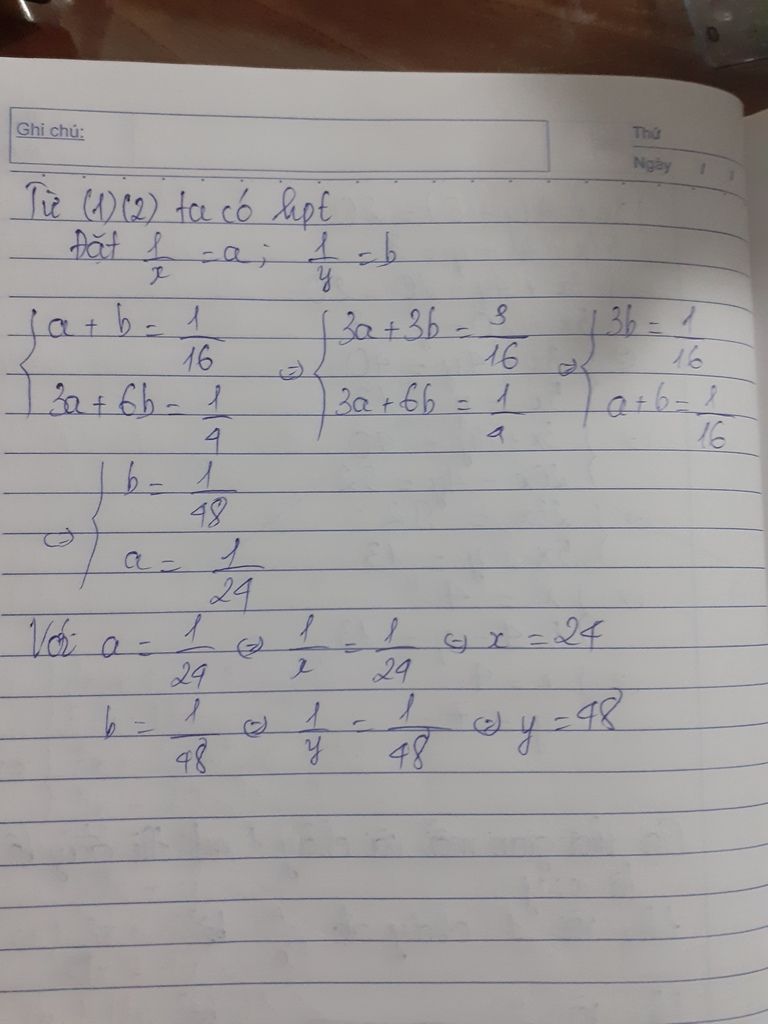 Ghi chú:
Thứ
Ngày / /
Từ (1)(2) ta có hpt
Đặt 1/x = a; 1/y = b
{ a + b = 1/16 ⇔ { 3a + 3b = 3/16 ⇔ { 3b = 1/16
{ 3a + 6b = 1/4 { 3a + 6b = 1/4 { a + b = 1/16
⇔ { b = 1/48
{ a = 1/24
Với a = 1/24 ⇔ 1/x = 1/24 ⇔ x = 24
b = 1/48 ⇔ 1/y = 1/48 ⇔ y = 48